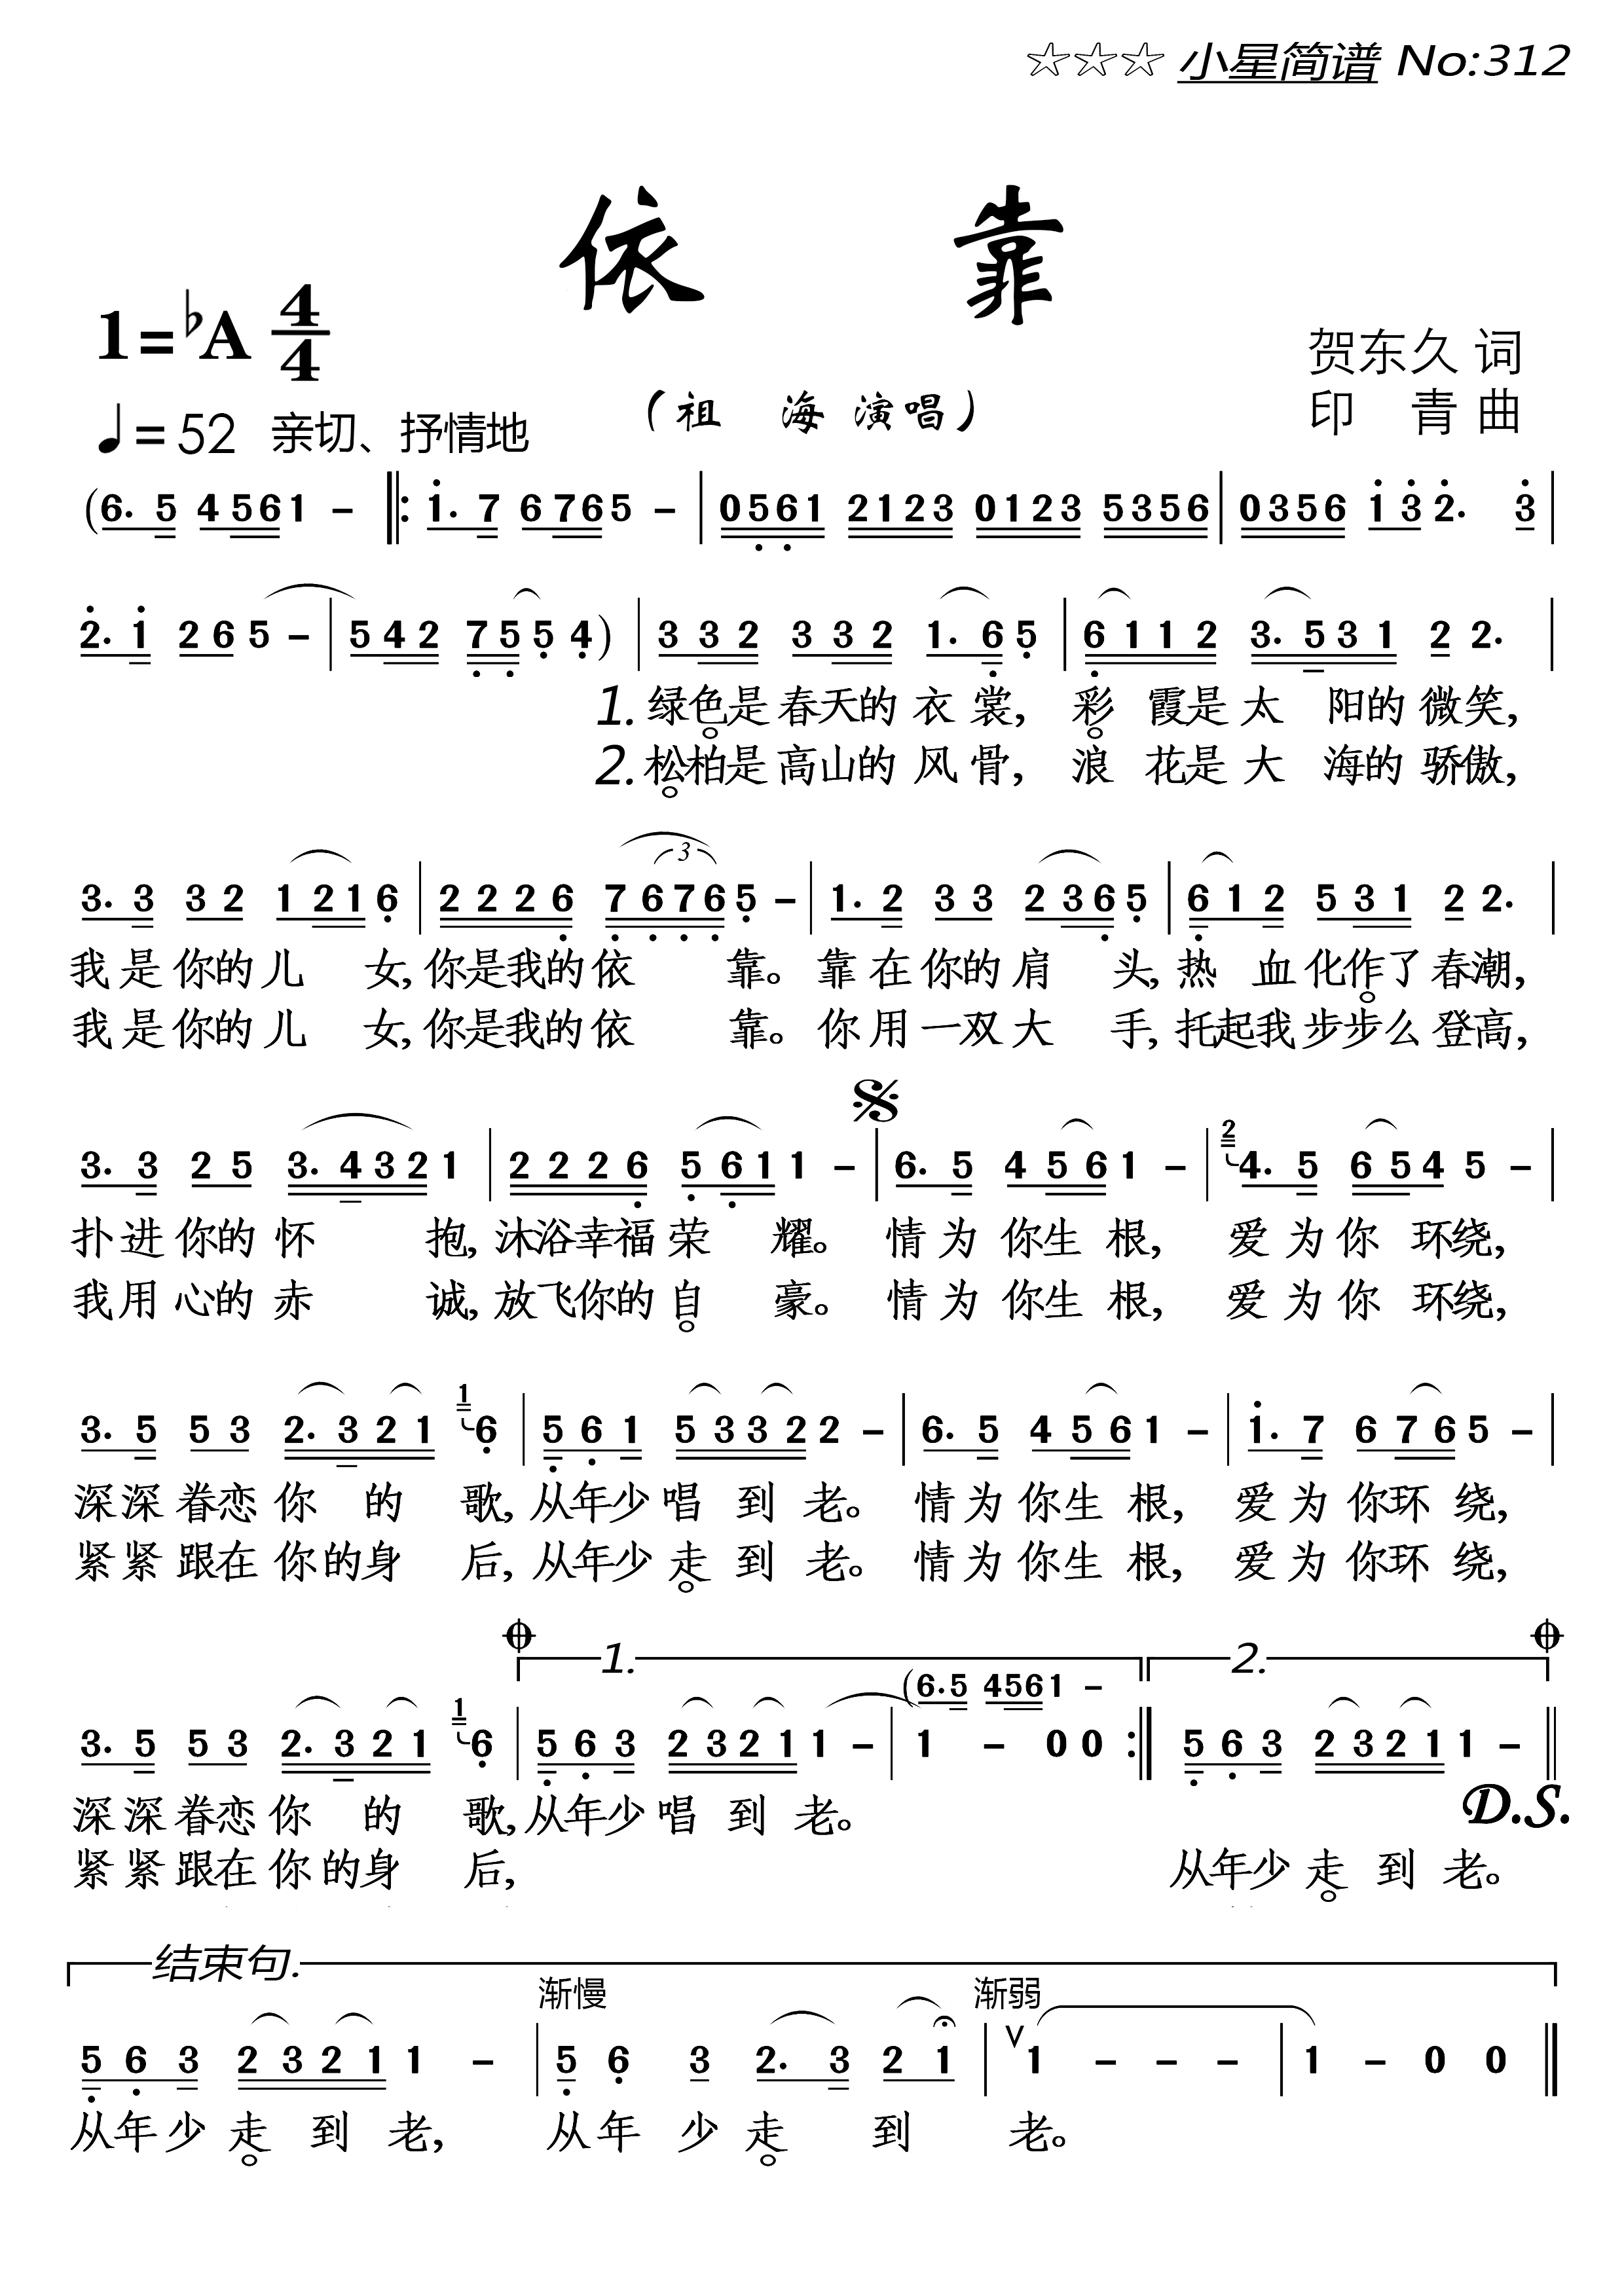 ☆☆☆ 小星简谱 No:312
依 靠
1=♭A 4/4
贺东久 词
(祖 海 演唱)
印 青 曲
♩=52 亲切、抒情地
(6. 5 4 5 6 1 - ‖: 1. 7 6 7 6 5 - | 0 5 6 1 2 1 2 3 0 1 2 3 5 3 5 6 | 0 3 5 6 1 3 2. 3 |
2. 1 2 6 5 - | 5 4 2 7 5 5 4) | 3 3 2 3 3 2 1. 6 5 | 6 1 1 2 3. 5 3 1 2 2. |
1. 绿色是春天的 衣 裳, 彩 霞是 太 阳的 微笑,
2. 松柏是高山的 风 骨, 浪 花是 大 海的 骄傲,
3
3. 3 3 2 1 2 1 6 | 2 2 2 6 7 6 7 6 5 - | 1. 2 3 3 2 3 6 5 | 6 1 2 5 3 1 2 2. |
我 是 你的 儿 女, 你是我的 依 靠。 靠 在 你的 肩 头, 热 血化作了 春潮,
我 是 你的 儿 女, 你是我的 依 靠。 你 用 一双 大 手, 托起我 步步么 登高,
3. 3 2 5 3. 4 3 2 1 | 2 2 2 6 5 6 1 1 - | 6. 5 4 5 6 1 - | 2 4. 5 6 5 4 5 - |
扑 进 你的 怀 抱, 沐浴幸福 荣 耀。 情 为 你生 根, 爱 为 你 环绕,
我 用 心的 赤 诚, 放飞你的 自 豪。 情 为 你生 根, 爱 为 你 环绕,
3. 5 5 3 2. 3 2 1 1 6 | 5 6 1 5 3 3 2 2 - | 6. 5 4 5 6 1 - | 1. 7 6 7 6 5 - |
深 深 眷恋 你 的 歌, 从年少 唱 到 老。 情 为 你生 根, 爱 为 你环 绕,
紧 紧 跟在 你 的身 后, 从年少 走 到 老。 情 为 你生 根, 爱 为 你环 绕,
1. 2.
(6. 5 4 5 6 1 -
3. 5 5 3 2. 3 2 1 1 6 | 5 6 3 2 3 2 1 1 - | 1 - 0 0 :‖ 5 6 3 2 3 2 1 1 - ‖
D.S.
深 深 眷恋 你 的 歌, 从年少 唱 到 老。
紧 紧 跟在 你 的身 后, 从年少 走 到 老。
结束句.
渐慢 渐弱
5 6 3 2 3 2 1 1 - | 5 6 3 2. 3 2 1 | ∨ 1 - - - | 1 - 0 0 ‖
从年少 走 到 老, 从 年 少 走 到 老。